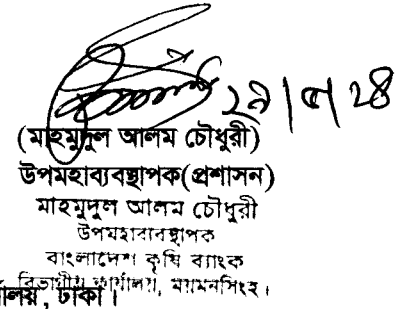 ২৯|৫|২৪
(মাহমুদুল আলম চৌধুরী)
উপমহাব্যবস্থাপক(প্রশাসন)
মাহমুদুল আলম চৌধুরী
উপমহাব্যবস্থাপক
বাংলাদেশ কৃষি ব্যাংক
বিভাগীয় কার্যালয়, ময়মনসিংহ।
লয়, ঢাকা।